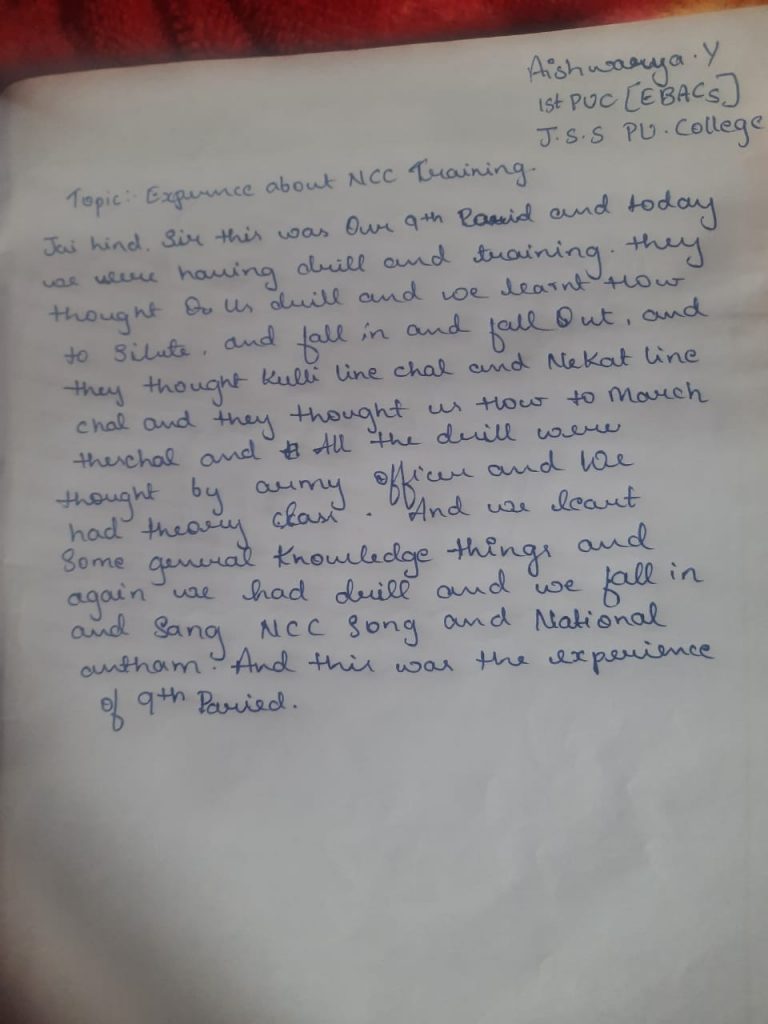 Aishwarya.Y
1st PUC [EBACS]
J.S.S PU.College
Topic:- Experince about NCC Training.
Jai hind. Sir this was Our 9th Paried and today
we were having drill and training. they
thought us drill and we learnt How
to Silute. and fall in and fall Out, and
they thought Kulli line chal and Nekat line
chal and they thought us How to March
therchal and All the drill were
thought by army officer and We
had theory class. And we learnt
Some general Knowledge things and
again we had drill and we fall in
and Sang NCC Song and National
antham. And this was the experience
of 9th Paried.